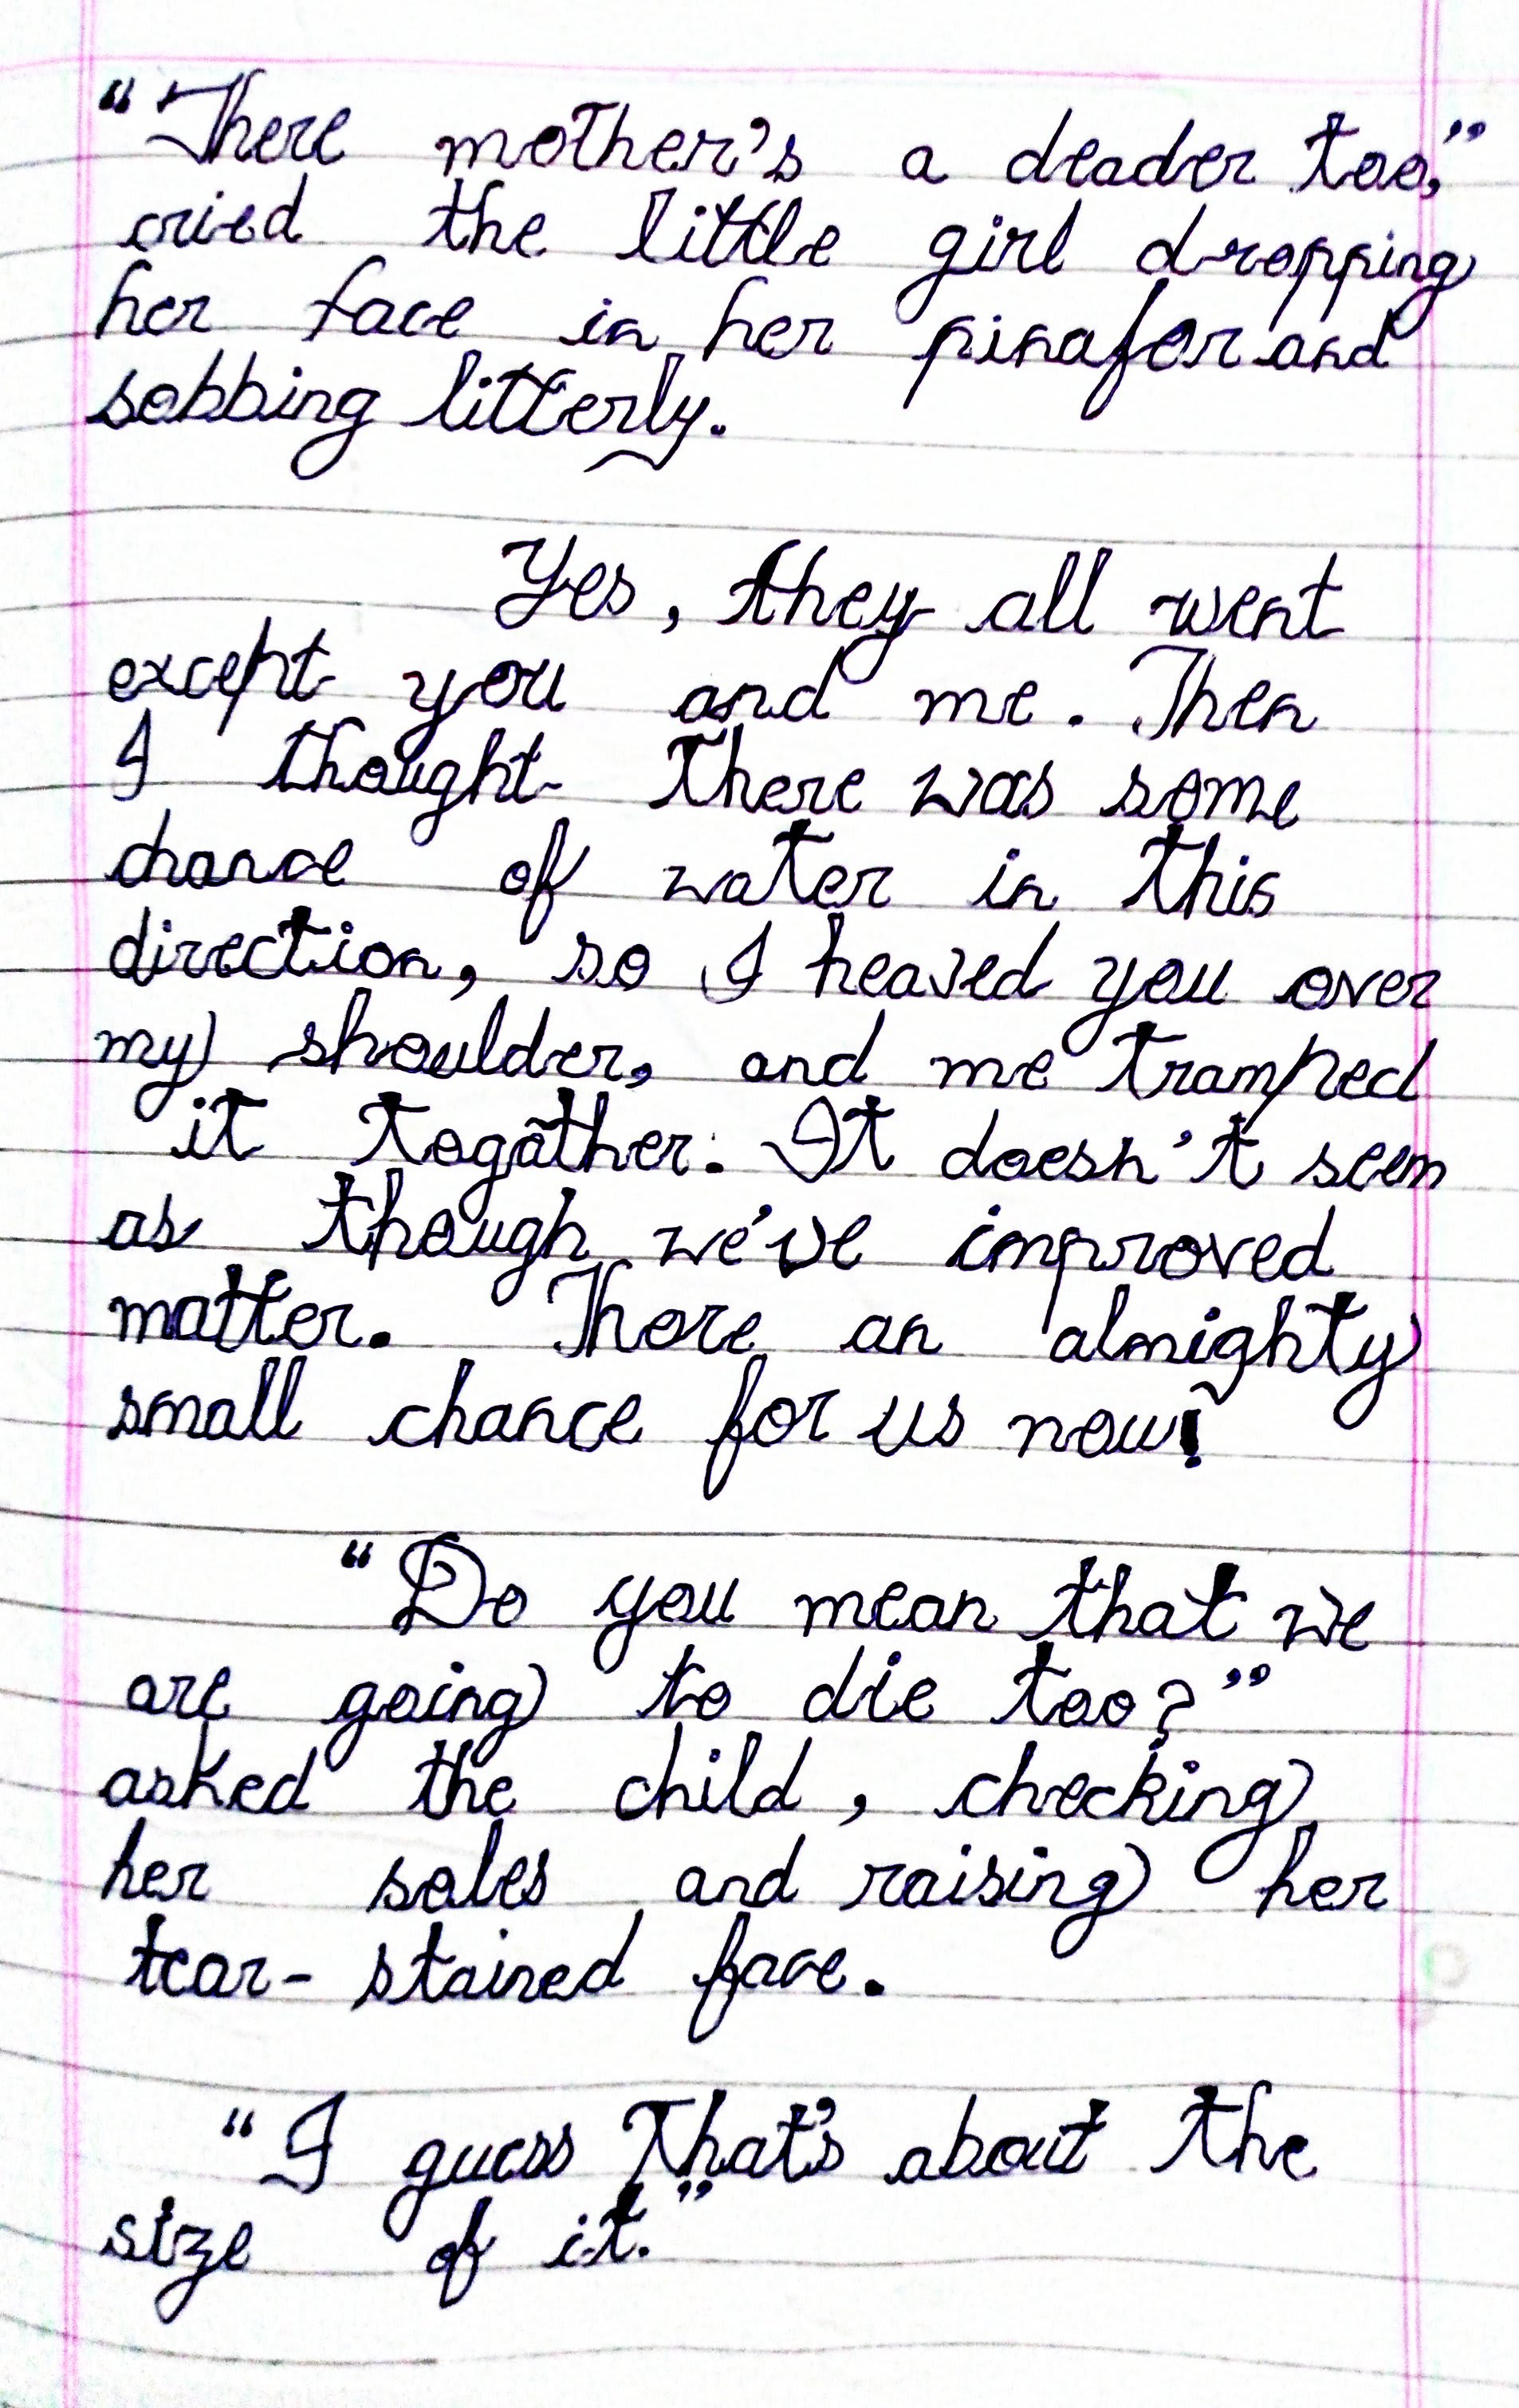 "There mother's a deader too,"
cried the little girl dropping
her face in her pinafor and
sobbing litterly.
Yes, they all went
except you and me. Then
I thought there was some
chance of water in this
direction, so I heaved you over
my shoulder, and me tramped
it togather. It doesn't seem
as though we've improved
matter. There an almighty
small chance for us now!
"Do you mean that we
are going to die too?"
asked the child, checking
her soles and raising her
tear-stained face.
"I guess that's about the
size of it."